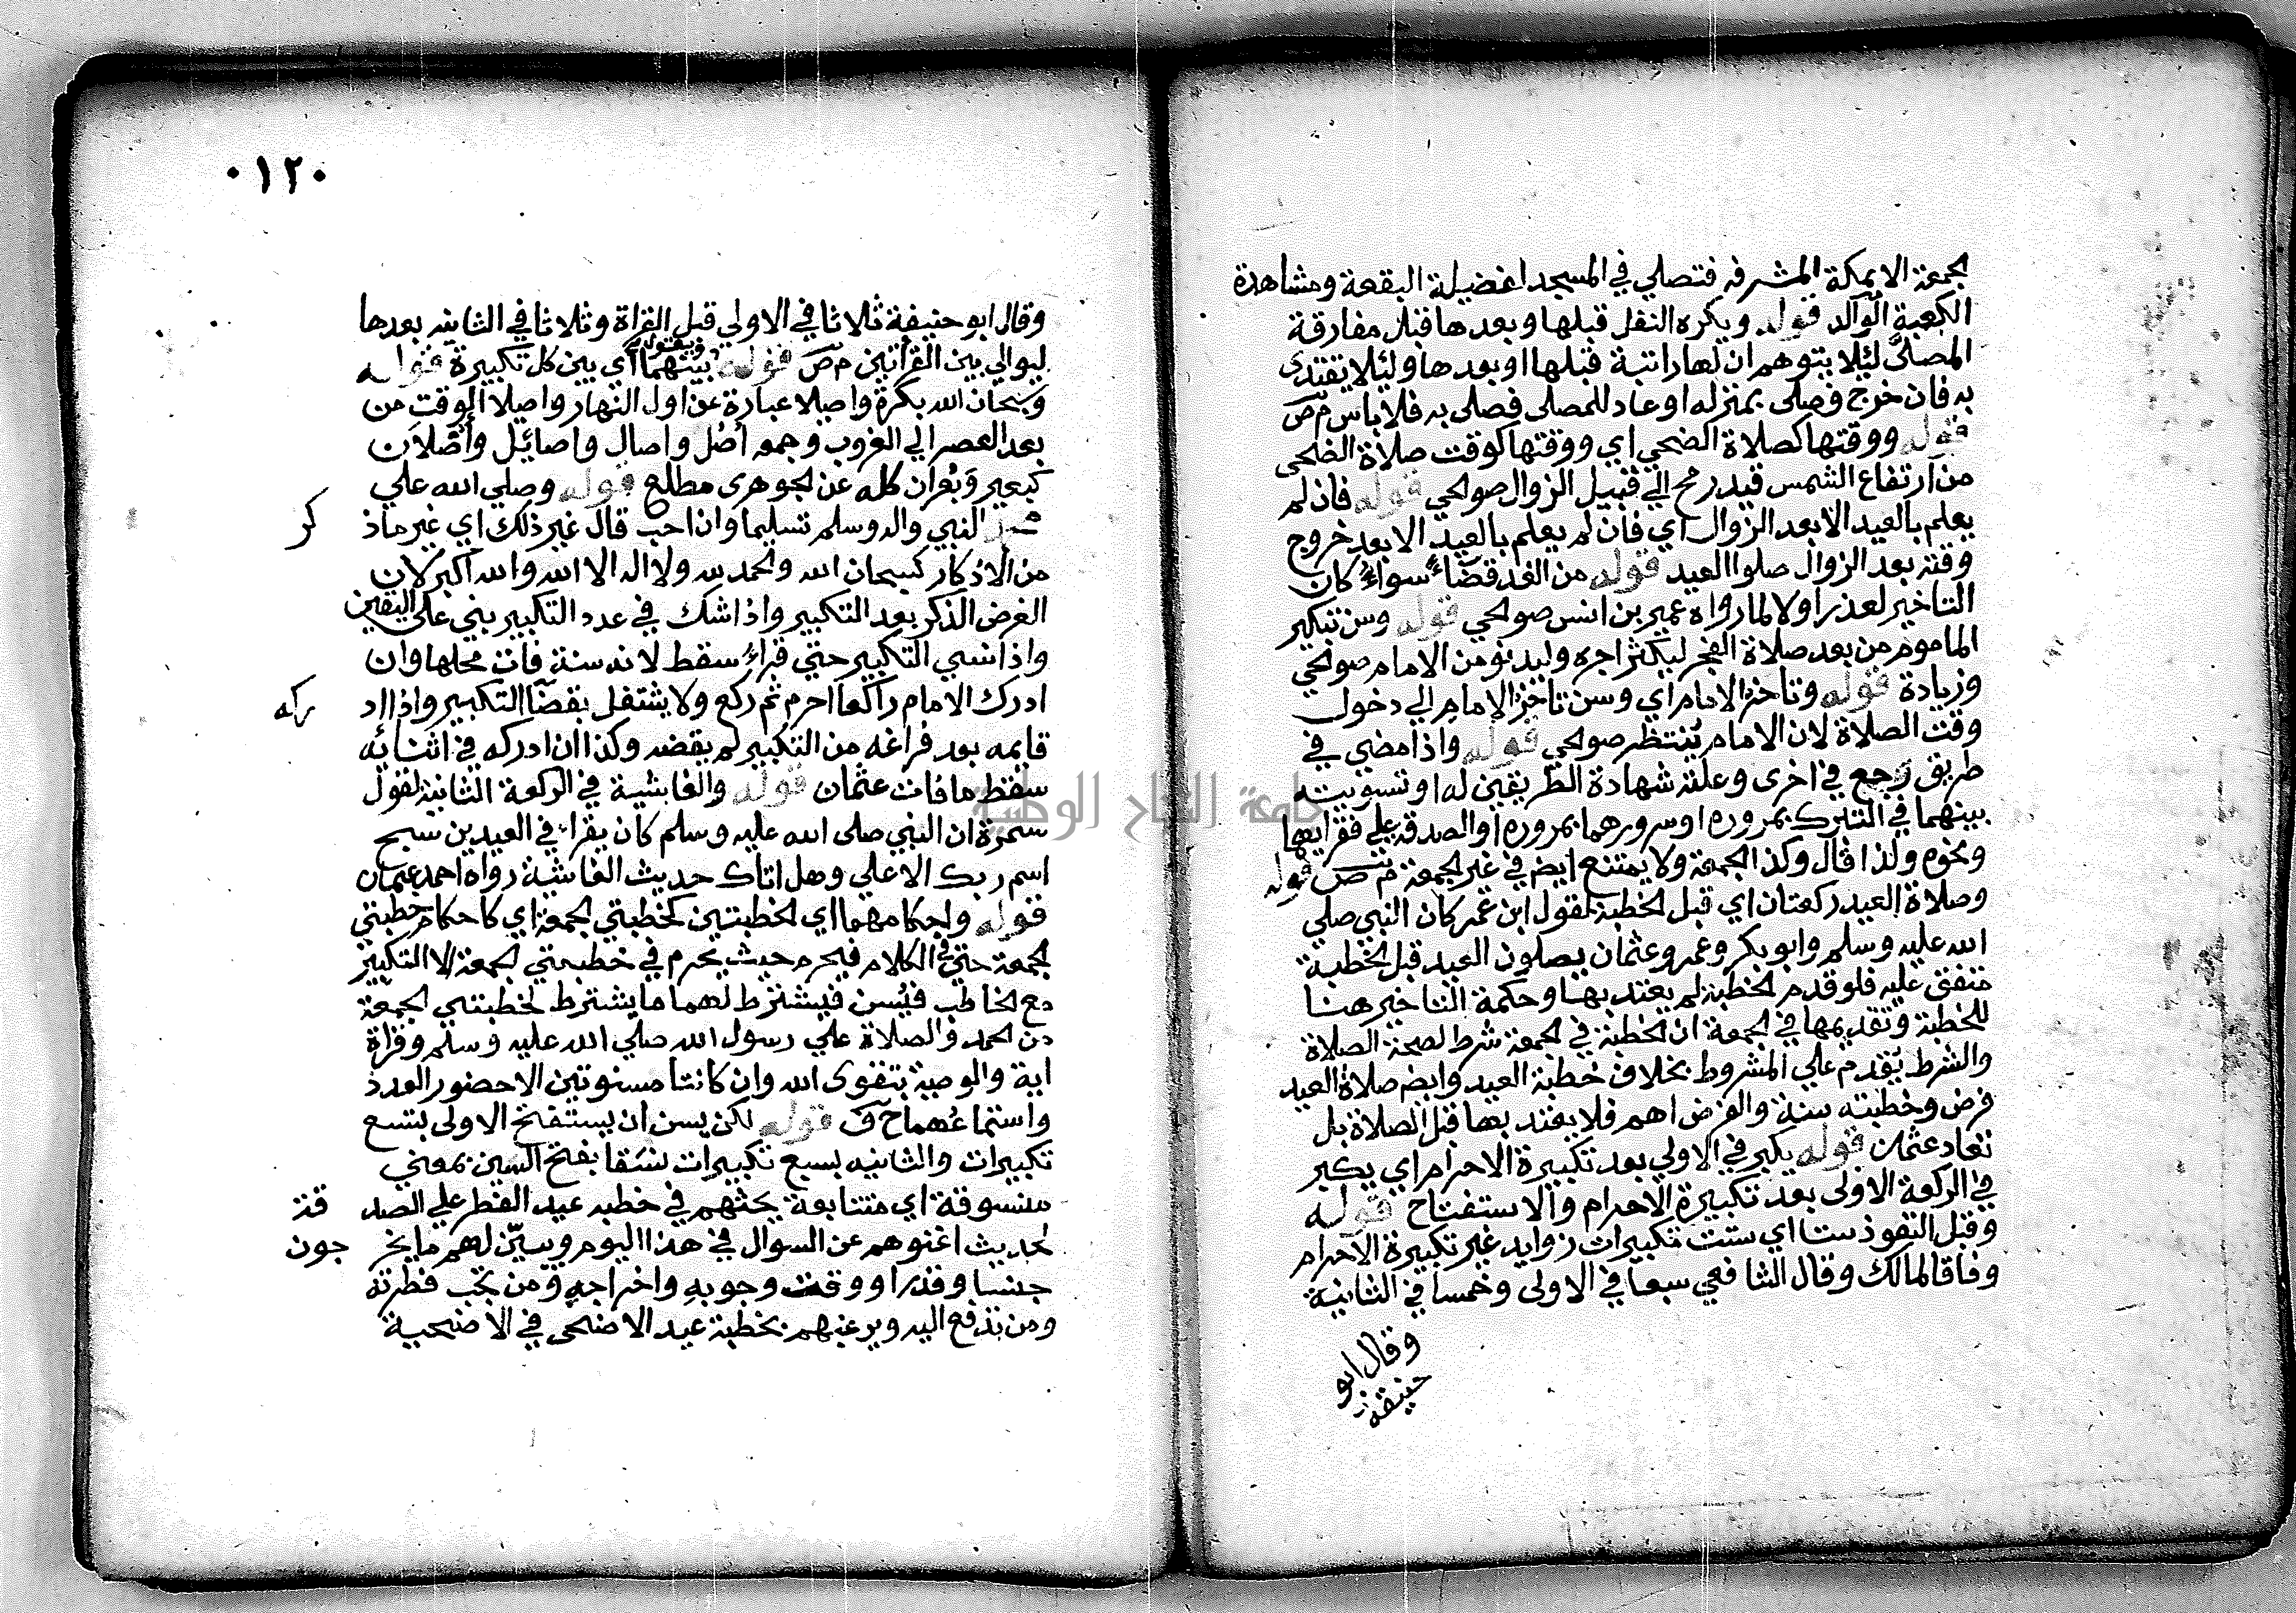 لجمعة الا بمكة المشرفه فتصلي في المسجد لفضيلة البقعة ومشاهدة
الكعبة الوالد قوله ويكره النفل قبلها وبعدها قبل مفارقة
المصلى لئلا يتوهم ان لها راتبة قبلها او بعدها ولئلا يقتدى
به فان خرج فصلى بمنزله او عاد للمصلى فصلى به فلا باس م ص
قوله ووقتها كصلاة الضحي اي ووقتها كوقت صلاة الضحى
من ارتفاع الشمس قيد رمح الي قبيل الزوال صوالحي قوله فان لم
يعلم بالعيد الا بعد الزوال اي فان لم يعلم بالعيد الا بعد خروج
وقته بعد الزوال صلوا العيد قوله من الغد قضاء سواء كان
التاخير لعذر او لا لما رواه عمير بن انس صوالحي قوله وسن تبكير
الماموم من بعد صلاة الفجر ليكثر اجره وليدنو من الامام صوالحي
وزيادة قوله وتاخر الامام اي وسن تاخر الامام الي دخول
وقت الصلاة لان الامام ينتظر صوالحي قوله واذا مضي في
طريق رجع في اخرى وعلته شهادة الطريقين له او تسويته
بينهما في التبرك بمروره او سرورهما بمروره او الصدقه علي فقرايهما
ونحوه ولذا قال وكذا الجمعة ولا يمتنع ايضم في غير لجمعة م ص قوله
وصلاة العيد ركعتان اي قبل لخطبة لقول ابن عمر كان النبي صلي
الله عليه وسلم وابو بكر وعمر وعثمان يصلون العيد قبل لخطبة
متفق عليه فلو قدم لخطبة لم يعتد بها وحكمة التاخير هنا
للخطبة وتقديمها في لجمعة ان لخطبة في لجمعة شرط لصحة الصلاة
والشرط يقدم علي المشروط بخلاف خطبة العيد وايضم صلاة العيد
فرض وخطبته سنة والفرض اهم فلا يعتد بها قبل الصلاة بل
تعاد عثمان قوله يكبر في الاولي بعد تكبيرة الاحرام اي يكبر
في الركعة الاولى بعد تكبيرة الاحرام والاستفتاح قوله
وقبل التعوذ ستا اي ست تكبيرات زوايد غير تكبيرة الاحرام
وفاقا لمالك وقال الشافعي سبعا في الاولى وخمسا في الثانية
وقال ابو
حنيفة
٠١٢٠
وقال ابو حنيفة ثلاثا في الاولي قبل القراة وثلاثا في الثانيه بعدها
ليوالي بين القراتين م ص قوله ويقول بينهما اي بين كل تكبيرة قوله
وسبحان الله بكرة واصيلا عبارة عن اول النهار واصيلا الوقت من
بعد العصر الي الغروب وجمعه اصل واصال واصائل وأصلان
كبعير وبعران كله عن لجوهرى مطلع قوله وصلي الله علي
محمد النبي واله وسلم تسليما وان احب قال غير ذلك اي غير ماذ كر
من الاذكار كسبحان الله ولحمد لله ولا اله الا الله والله اكبر لان
الغرض الذكر بعد التكبير واذا شك في عدد التكبير بني على اليقين
واذا نسي التكبير حتي قراء سقط لانه سنة فات محلها وان
ادرك الامام راكعا احرم ثم ركع ولا يشتغل بقضا التكبير واذا اد ركه
قايمه بعد فراغه من التكبير لم يقضه وكذا ان ادركه في اثنائه
سقط ما فات عثمان قوله والغاشية في الركعة الثانية لقول
سمرة ان النبي صلى الله عليه وسلم كان يقراء في العيدين سبح
اسم ربك الاعلي وهل اتاك حديث الغاشية رواه احمد عثمان
قوله واحكامهما اي لخطبتين كخطبتي لجمعة اي كاحكام خطبتي
لجمعة حتي في الكلام فيحرم حيث يحرم في خطبتي لجمعة الا التكبير
مع لخاطب فيسن فيشترط لهما ما يشترط لخطبتي لجمعة
من لحمد والصلاة علي رسول الله صلي الله عليه وسلم وقراة
اية والوصية بتقوى الله وان كانتا مسنونتين الا حضور العدد
واستماعهما ح ف قوله لكن يسن ان يستفتح الاولى بتسع
تكبيرات والثانيه بسبع تكبيرات نسقا بفتح السين بمعني
منسوقة اي متتابعة يحثهم في خطبه عيد الفطر علي الصد قة
لحديث اغنوهم عن السوال في هذا اليوم ويبيّن لهم ما يخر جون
جنسا وقدرا ووقت وجوبه واخراجه ومن تجب فطرته
ومن تدفع اليه ويرغبهم بخطبة عيد الاضحى في الاضحية
جامعة النجاح الوطنية